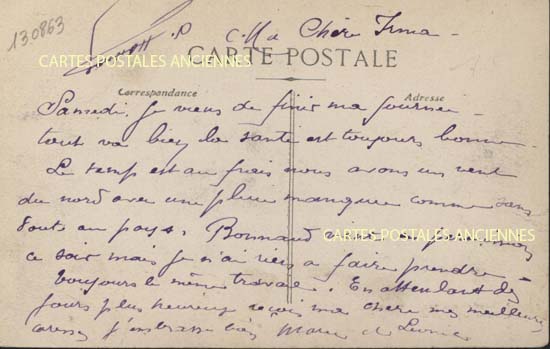 130863
Ma Chère Irma
CARTES POSTALES ANCIENNES
CARTE POSTALE
Correspondance Adresse
Samedi. je viens de finir ma journée
tout va bien la santé est toujours bonne
Le temps est au frais nous avons un vent
du nord avec une pluie manquée comme
au pays. Bonnaud
CARTES POSTALES ANCIENNES
ce soir mais je n'ai rien a faire prendre
toujours le même travail. En attendant des
jours plus heureux reçois ma chère mes meilleurs
caresses j'embrasse bien Marie